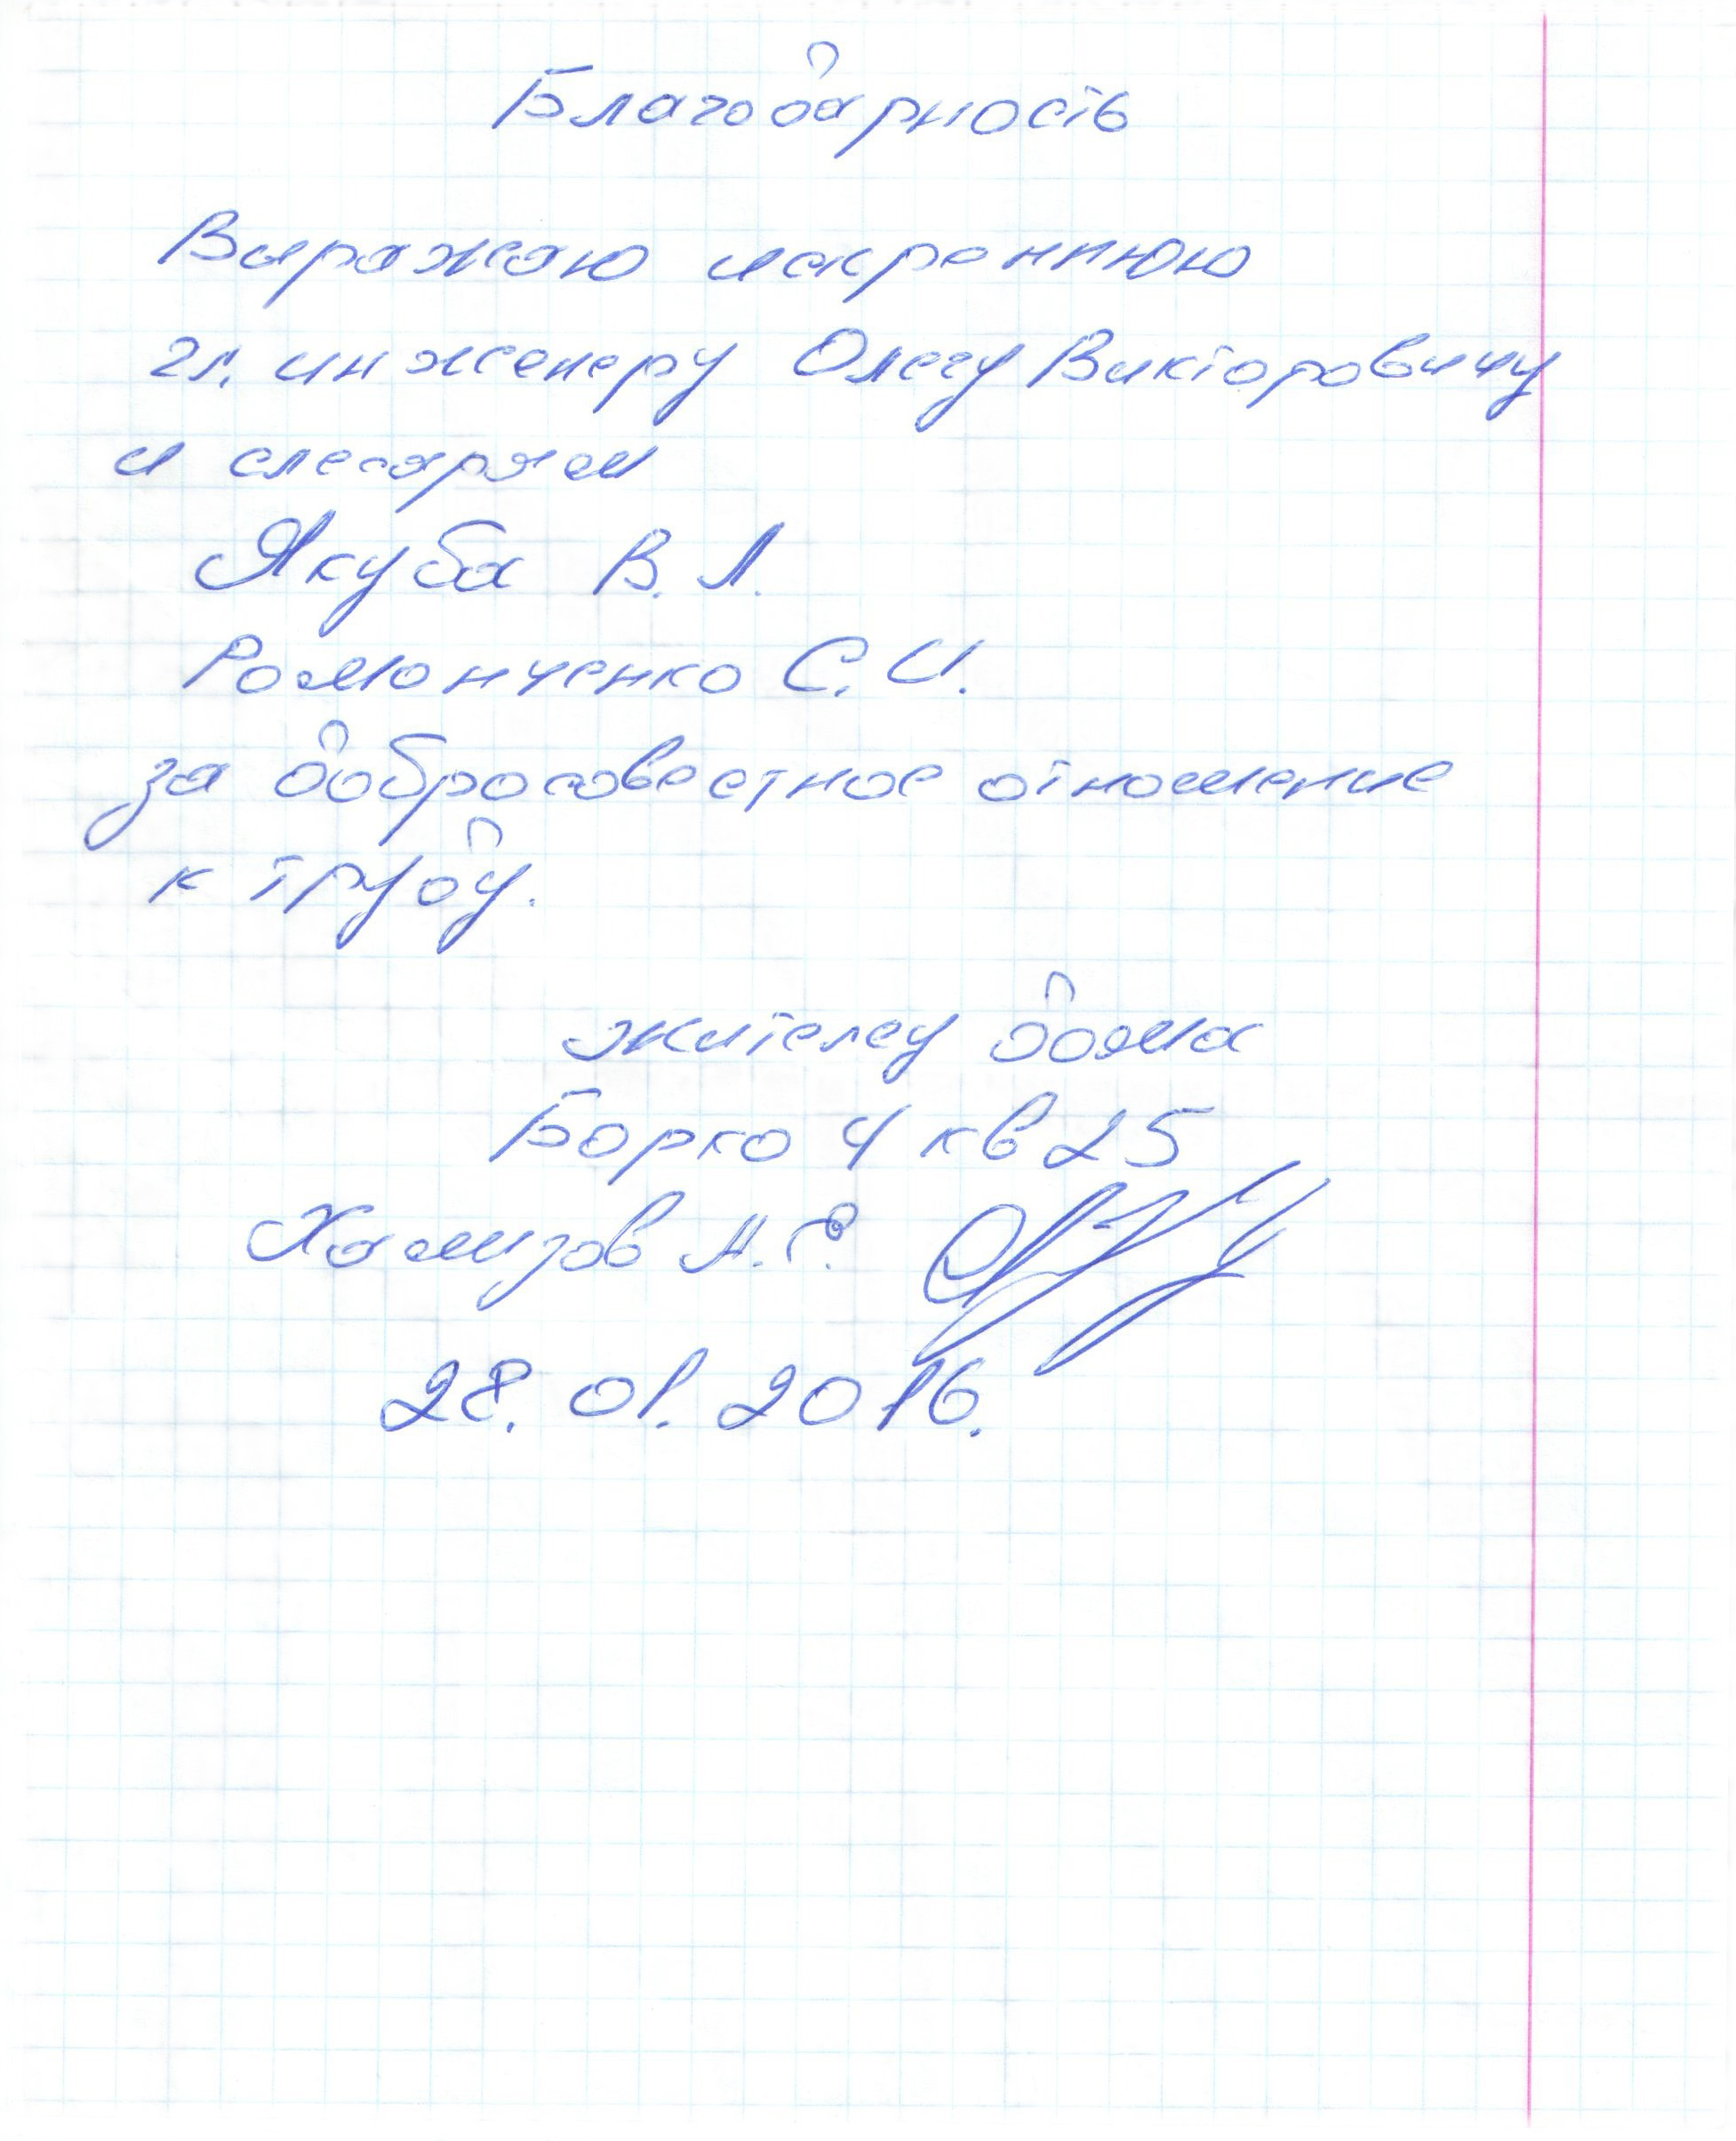 Благодарность
Выражаю искреннюю
гл. инженеру Олегу Викторовичу
и слесарям
Якуба В. Л.
Романченко С. И.
за добросовестное отношение
к труду.
жителец дома
Борко 4 кв 25
Хамизов А. С.
28. 01. 2016.